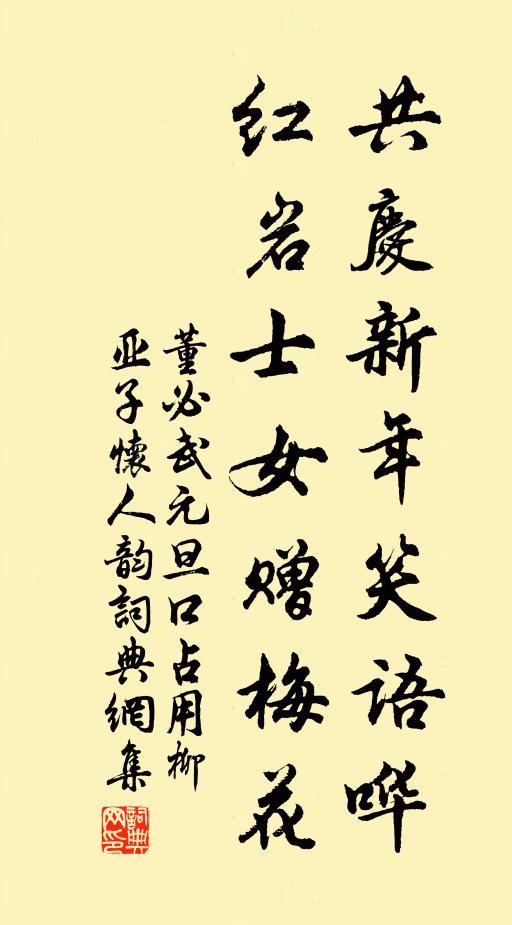 共慶新年笑语哗
红岩士女赠梅花
董必武元旦口占用柳
亚子懷人韵詞典網集
詞典
网印